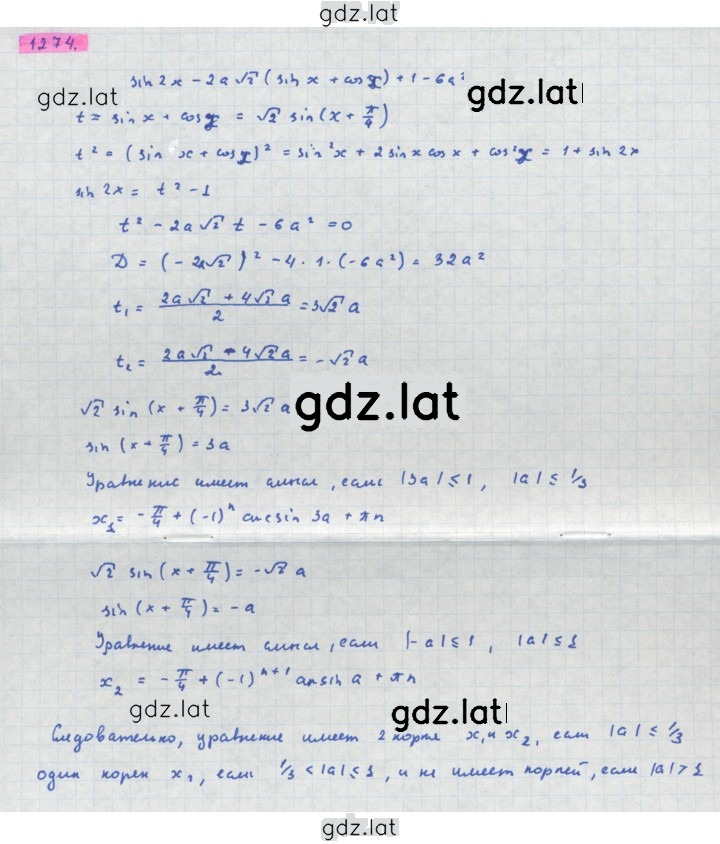 gdz.lat
1274.
sin 2x − 2a√2 (sin x + cos x) + 1 − 6a²
gdz.lat
gdz.lat
t = sin x + cos x = √2 sin(x + π/4)
t² = (sin x + cos x)² = sin²x + 2 sin x cos x + cos²x = 1 + sin 2x
sin 2x = t² − 1
t² − 2a√2 t − 6a² = 0
D = (−2a√2)² − 4 · 1 · (−6a²) = 32a²
t₁ = (2a√2 + 4√2a)/2 = 3√2 a
t₂ = (2a√2 − 4√2a)/2 = −√2 a
√2 sin (x + π/4) = 3√2 a
gdz.lat
sin (x + π/4) = 3a
Уравнение имеет смысл, если |3a| ≤ 1, |a| ≤ 1/3
x₁ = −π/4 + (−1)ⁿ arcsin 3a + πn
√2 sin (x + π/4) = −√2 a
sin (x + π/4) = −a
Уравнение имеет смысл, если |−a| ≤ 1, |a| ≤ 1
x₂ = −π/4 + (−1)ⁿ⁺¹ arcsin a + πn
gdz.lat
gdz.lat
Следовательно, уравнение имеет 2 корня x₁ и x₂, если |a| ≤ 1/3
один корен x₂, если 1/3 < |a| ≤ 1, и не имеет корней, если |a| > 1
gdz.lat